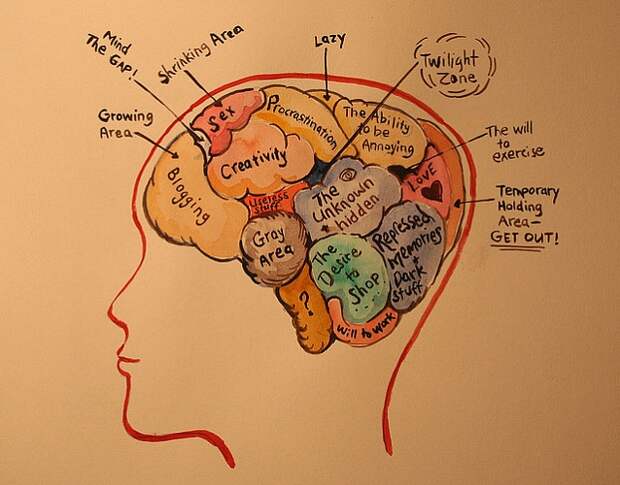 Mind
The GAP!
Shrinking Area
Lazy
Twilight
Zone
Growing
Area
Sex
Procrastination
The Ability
to be
Annoying
The will
to
exercise
Creativity
Blogging
Useless
stuff
The
Unknown
+
hidden
LOVE
Temporary
Holding
Area—
GET OUT!
Gray
Area
The
Desire
to
Shop
Repressed
Memories
+
Dark
stuff
?
Will to Work